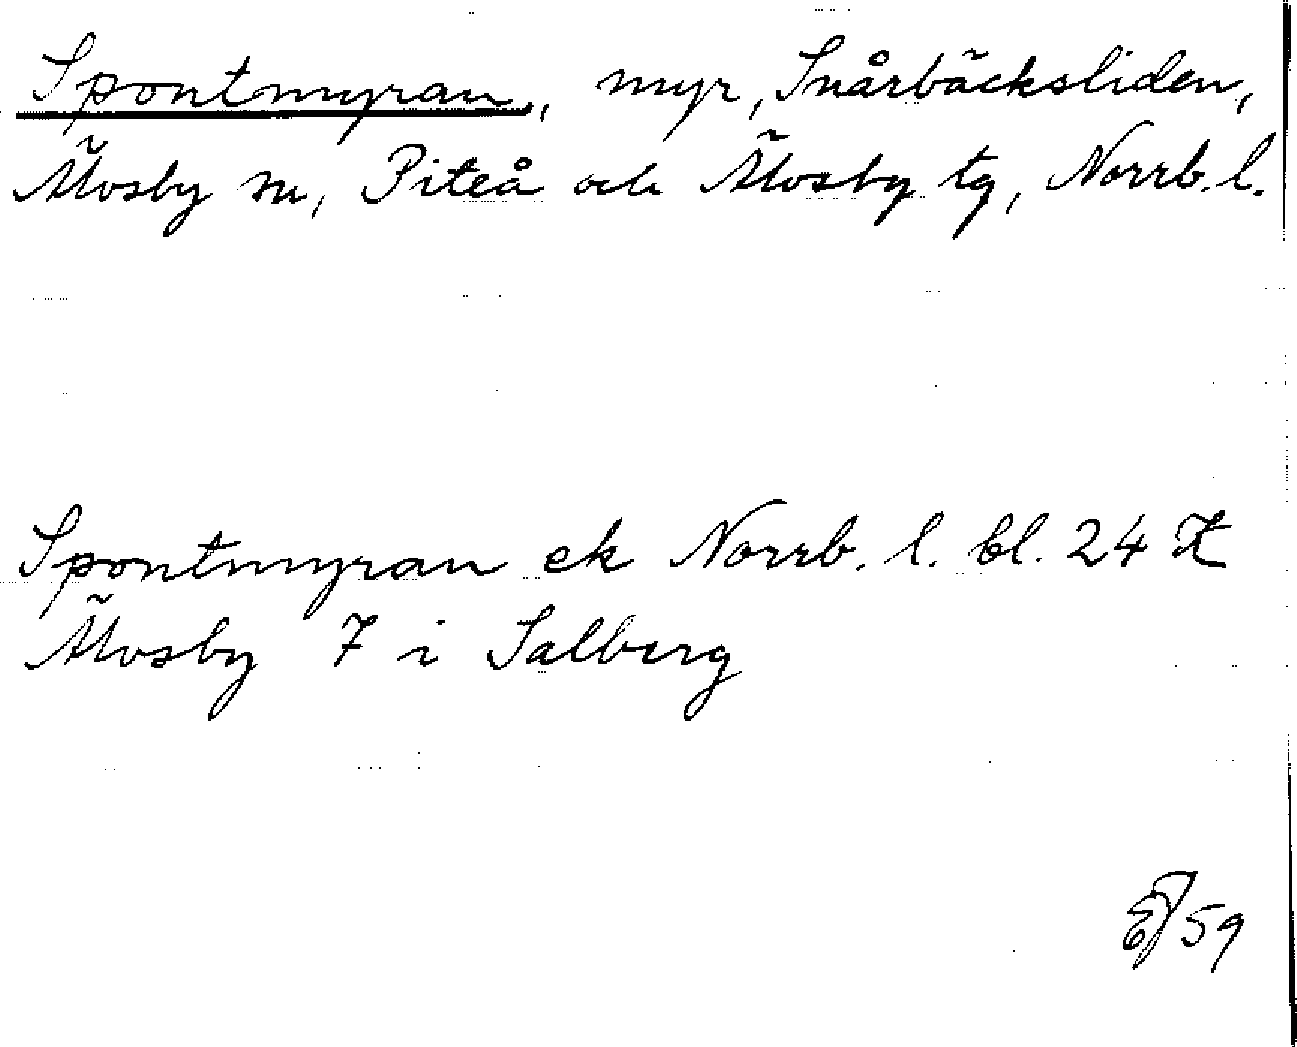 Spontmyran, myr, Snårbäcksliden,
Älvsby sn, Piteå och Älvsby tg, Norrb. l.
Spontmyran ek Norrb. l. bl. 24 Z
Älvsby 7 i Salberg
/59